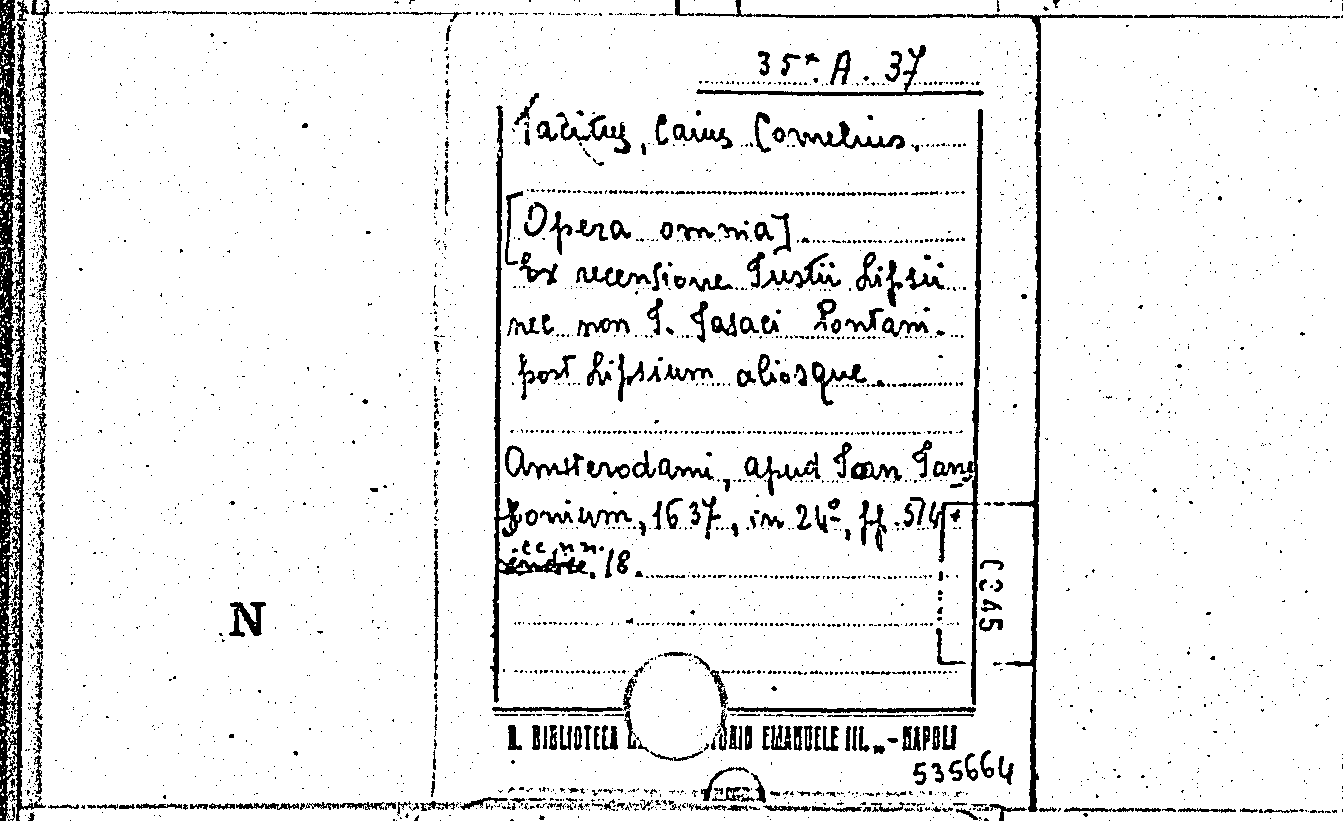 35ª. A. 37
Tacitus, Caius Cornelius.
[Opera omnia].
Ex recensione Iustii Lipsii
nec non I. Isasaci Pontani.
post Lipsium aliosque.
Amsterodami, apud Ioan Ians
sonium, 1637, in 24º, pp. 574 +
cc. nn. 18.
C245
N
R. BIBLIOTECA EMANUELE III. „ - NAPOLI
535664